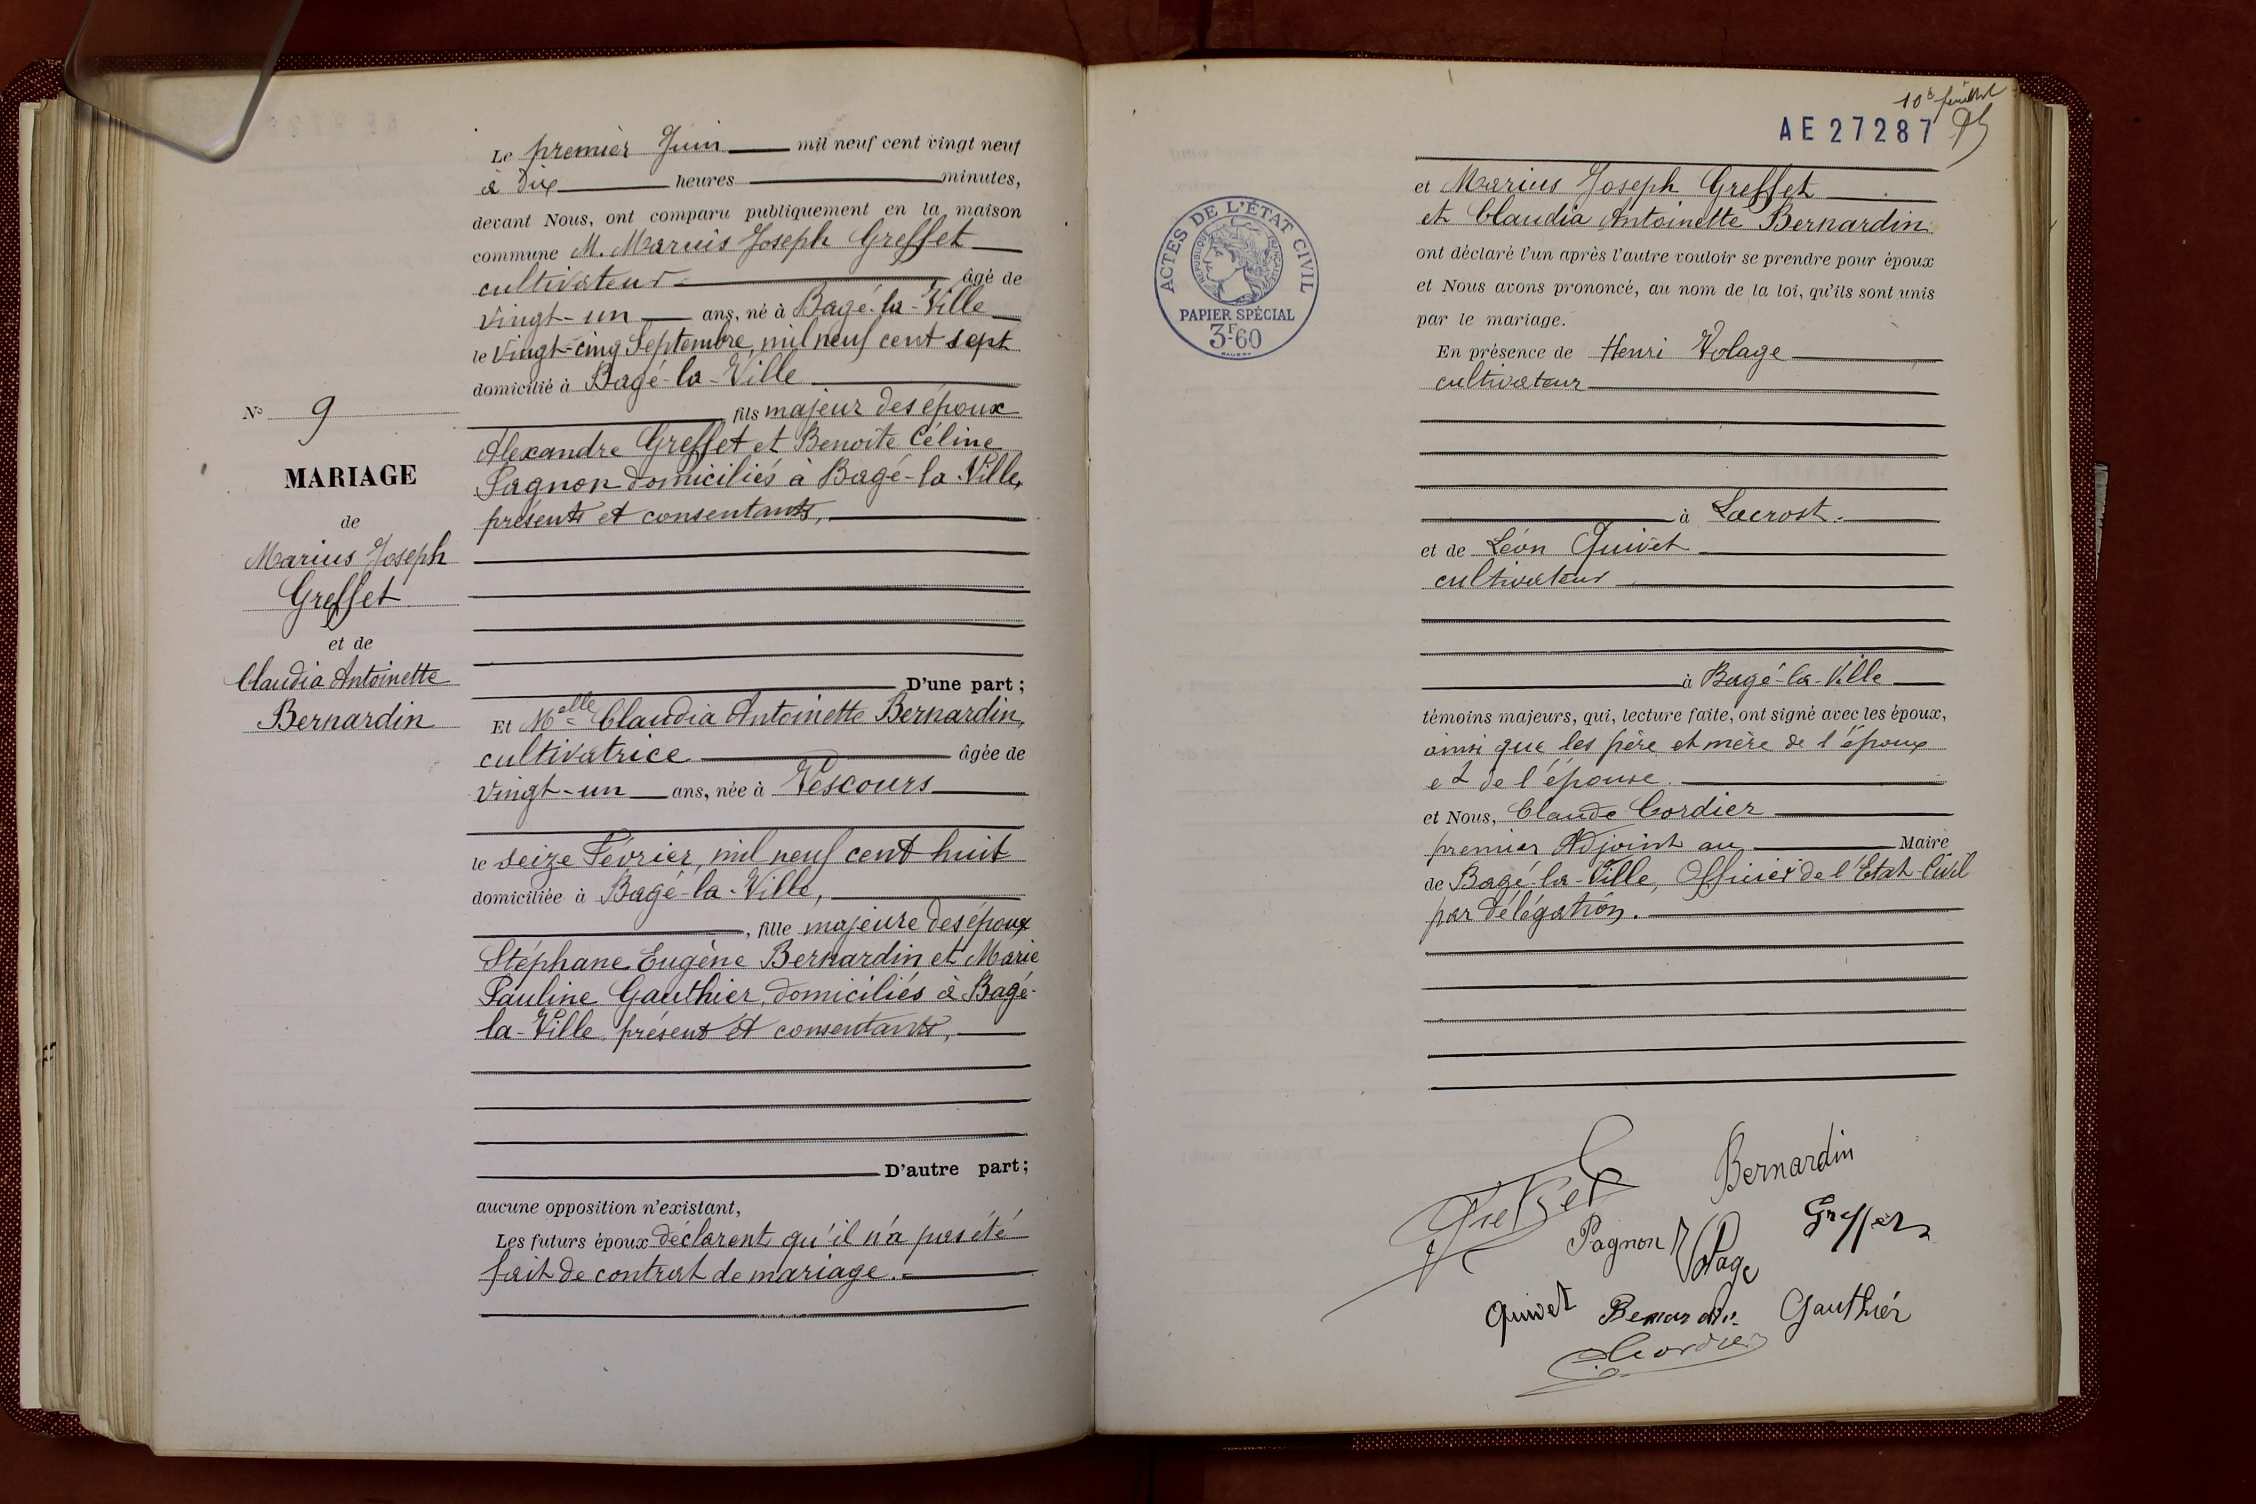 Le premier Juin mil neuf cent vingt neuf
à Dix heures minutes,
devant Nous, ont comparu publiquement en la maison
commune M. Marius Joseph Greffet
cultivateur âgé de
vingt-un ans, né à Bagé-la-Ville
le vingt-cinq Septembre, mil neuf cent sept
domicilié à Bagé-la-Ville
fils majeur des époux
Alexandre Greffet et Benoîte Céline
Pagnon domiciliés à Bagé-la-Ville,
présents et consentants,
D'une part;
Et Melle Claudia Antoinette Bernardin,
cultivatrice âgée de
vingt-un ans, née à Vescours
le seize Février, mil neuf cent huit
domiciliée à Bagé-la-Ville,
, fille majeure des époux
Stéphane Eugène Bernardin et Marie
Pauline Gauthier, domiciliés à Bagé-
la-Ville présent et consentants,
D'autre part;
aucune opposition n'existant,
Les futurs époux déclarent qu'il n'a pas été
fait de contrat de mariage.-
N° 9
MARIAGE
de
Marius Joseph
Greffet
et de
Claudia Antoinette
Bernardin
10e feuillet
AE 27287
ACTES DE L'ÉTAT CIVIL
RÉPUBLIQUE FRANÇAISE
PAPIER SPÉCIAL
3F60
et Marius Joseph Greffet
et Claudia Antoinette Bernardin
ont déclaré l'un après l'autre vouloir se prendre pour époux
et Nous avons prononcé, au nom de la loi, qu'ils sont unis
par le mariage.
En présence de Henri Volage
cultivateur
à Lacrost.
et de Léon Quivet
cultivateur
à Bagé-la-Ville
témoins majeurs, qui, lecture faite, ont signé avec les époux,
ainsi que les père et mère de l'époux
et de l'épouse.
et Nous, Claude Cordier
premier Adjoint au Maire
de Bagé-la-Ville, Officier de l'Etat-Civil
par délégation.
Greffet Bernardin
Pagnon Volage Greffet
Quivet Bernardin Gauthier
Cordier